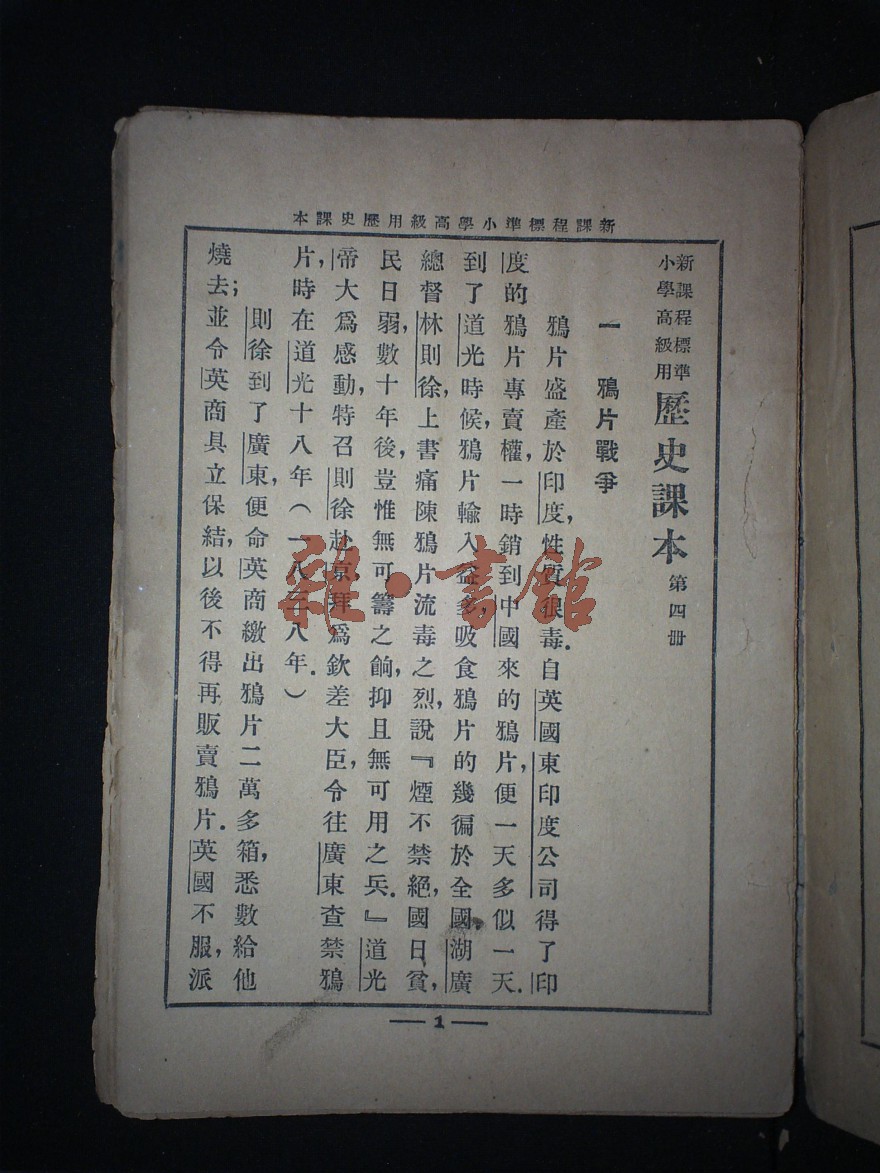 新課程標準小學高級用歷史課本
新課程標準
小學高級用
歷史課本 第四册
一 鴉片戰爭
鴉片盛產於印度，性質很毒．自英國東印度公司得了印
度的鴉片專賣權，一時銷到中國來的鴉片，便一天多似一天．
到了道光時候，鴉片輸入益多，吸食鴉片的幾徧於全國．湖廣
總督林則徐，上書痛陳鴉片流毒之烈，說『煙不禁絕，國日貧，
民日弱，數十年後，豈惟無可籌之餉，抑且無可用之兵．』道光
帝大爲感動，特召則徐赴京，拜爲欽差大臣，令往廣東查禁鴉
片，時在道光十八年（一八三八年．）
則徐到了廣東，便命英商繳出鴉片二萬多箱，悉數給他
燒去；並令英商具立保結，以後不得再販賣鴉片．英國不服，派
— 1 —
雜·書館